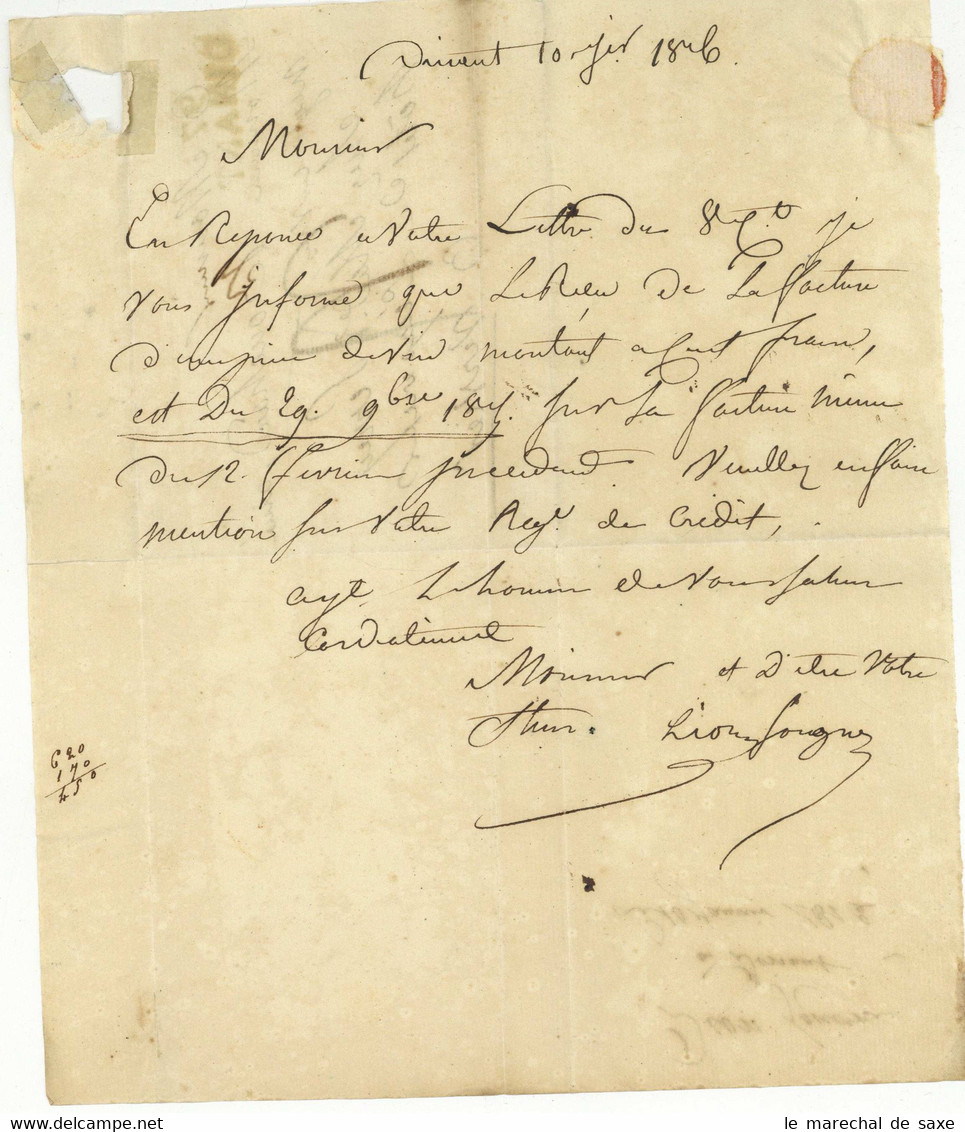 Dinant 10 jer 1816.
Monsieur
En Reponce a Votre Lettre du 8 Ct je
vous jnforme que Le Recu de La facture
d'une piece de vin montant a Cent francs,
est Du 29. 9bre 181 sur La facture meme
du 12. fevrier precedend. Veuillez en faire
mention sur Votre Reg. de Credit,.
ayt Lhonneur de Vous saluer
Cordialement
Monsieur et D'etre Votre
Sieur. Lion
620
170
450
DINANT
le marechal de saxe